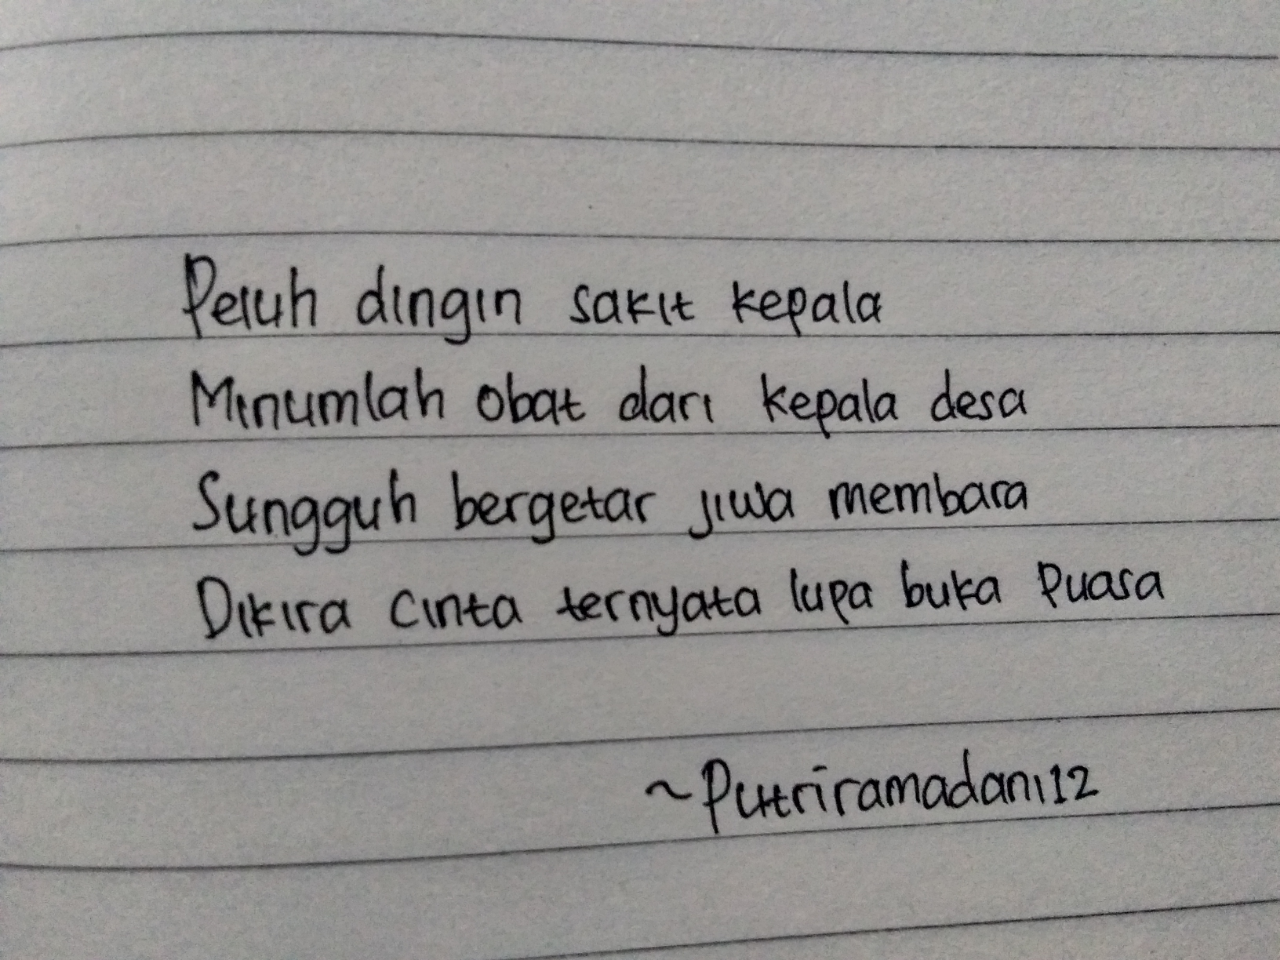 Peluh dingin sakit kepala
Minumlah obat dari kepala desa
Sungguh bergetar jiwa membara
Dikira cinta ternyata lupa buka puasa
~Putriramadani12